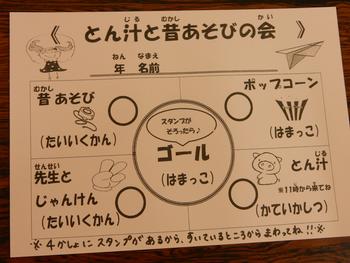 《 とん汁と昔あそびの会 》
じる
むかし
かい
ねん なまえ
年 名前
むかし
昔あそび
(たいいくかん)
ポップコーン
(はまっこ)
スタンプが
そろったら♪
ゴール
(はまっこ)
せんせい
先生と
じゃんけん
(たいいくかん)
じる
とん汁
※11時から来てね
(かていかしつ)
※4かしょにスタンプがあるから、すいているところからまわってね!!※